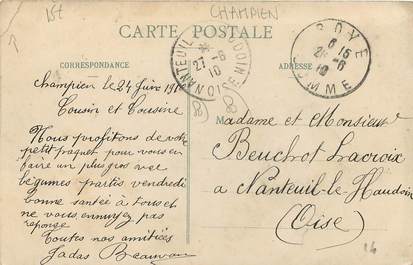 15€
CHAMPIEN
CARTE POSTALE
CORRESPONDANCE
ADRESSE
NANTEUIL LE HAUDOUIN
27-6
10
OISE
ROYE
6 15
26-6
10
SOMME
Champien le 24 Juin 1910
Cousin et Cousine
Nous profitons de votre
petit paquet pour vous en
faire un plus gros
légumes partis vendredi
bonne santée à tous et
ne vous ennuyez pas
reponse
Toutes nos amitiées
Jadas Beauvais
Madame et Monsieur
Beuchot Lacroix
a Nanteuil-le-Haudoin
(Oise)